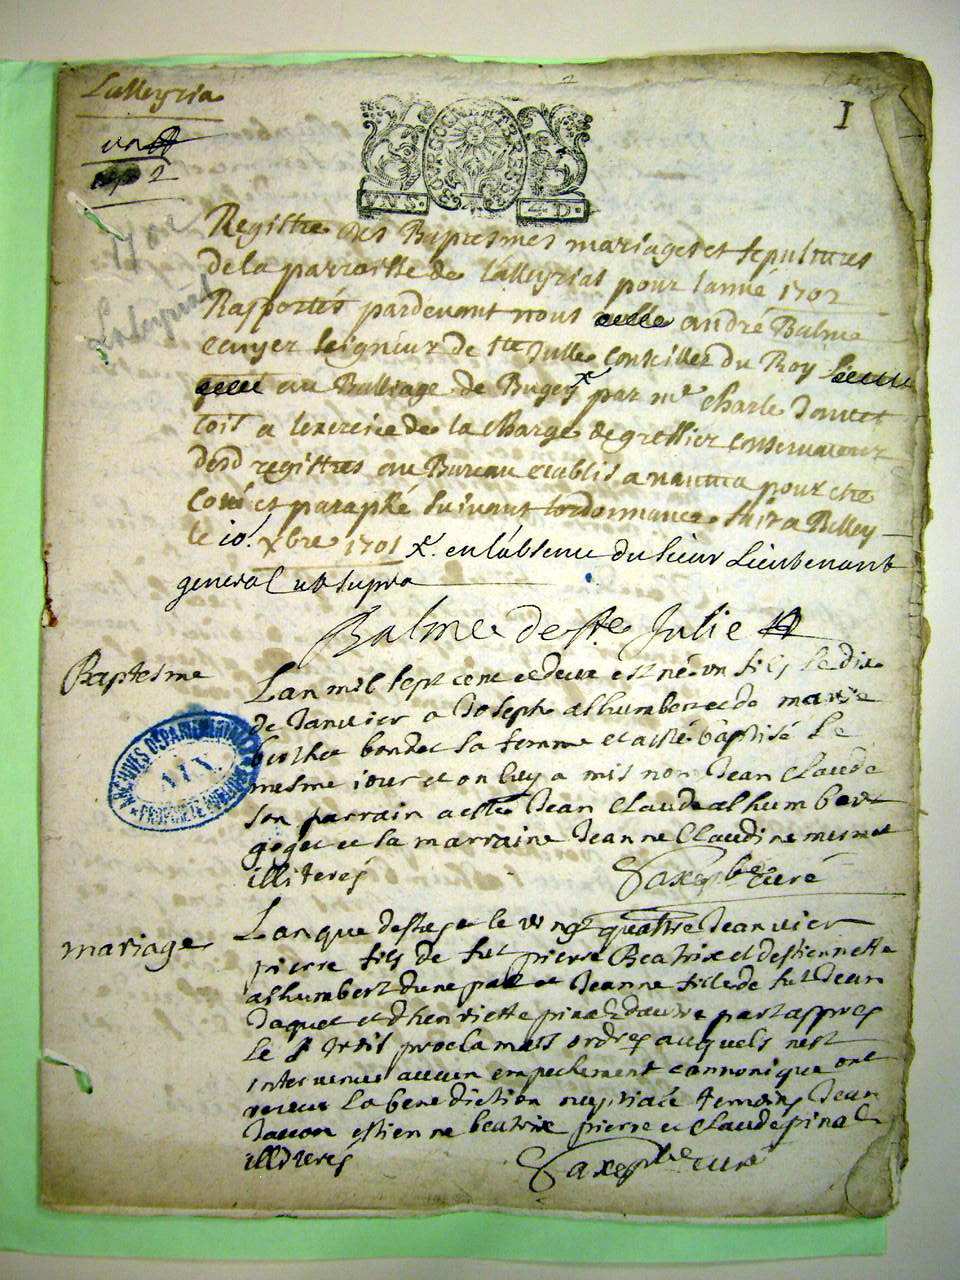 Lalleyria
1
2
BOURGOGNE ET BRESSE
VN.S. 4.D.
Registre des Baptesmes mariages et sepultures
de la parroisse de Lalleyriat pour lannée 1702
Rapportés pardevant nous andré Balme
ecuyer seigneur de ste Julle conseiller du Roy
au Balliage de Bugey par me charle Jouvet
cois a lexercice de la charge de greffier conservateur
desd registres au Bureau establis a nantua pour etre
coté et paraphé suivant lordonnance fait a Belley
le 10. xbre 1701 x. en labsence du sieur Lieutenant
general ut supra
Balme de ste Julie
Baptesme
Lan mil sept cent et deux est né un fils le dix
de Janvier a Joseph alhumbert et de marie
berthet bondet sa femme et a esté baptisé le
mesme iour et on luy a mis nom Jean Claude
son parrain a esté Jean Claude alhumbert
goget et sa marraine Jeanne Claudine mermet
illiterés
curé
ARCHIVES DÉPARTEMENTALES
AIN
PROPRIÉTÉ PUBLIQUE
mariage
Lan que dessus et le vingt quatre Jeanvier
pierre fils de fut pierre Beatrix et destiennette
alhumbert dune part et Jeanne fille de fut Jean
Jaquet et dhenriette pinal dautre part appres
le s trois proclamaões ordres auquels nest
intervenus aucun empechement cannonique ont
receux la benediction nuptialle temoins Jean
estienne beatrix pierre et claude pinal
illiterés
curé